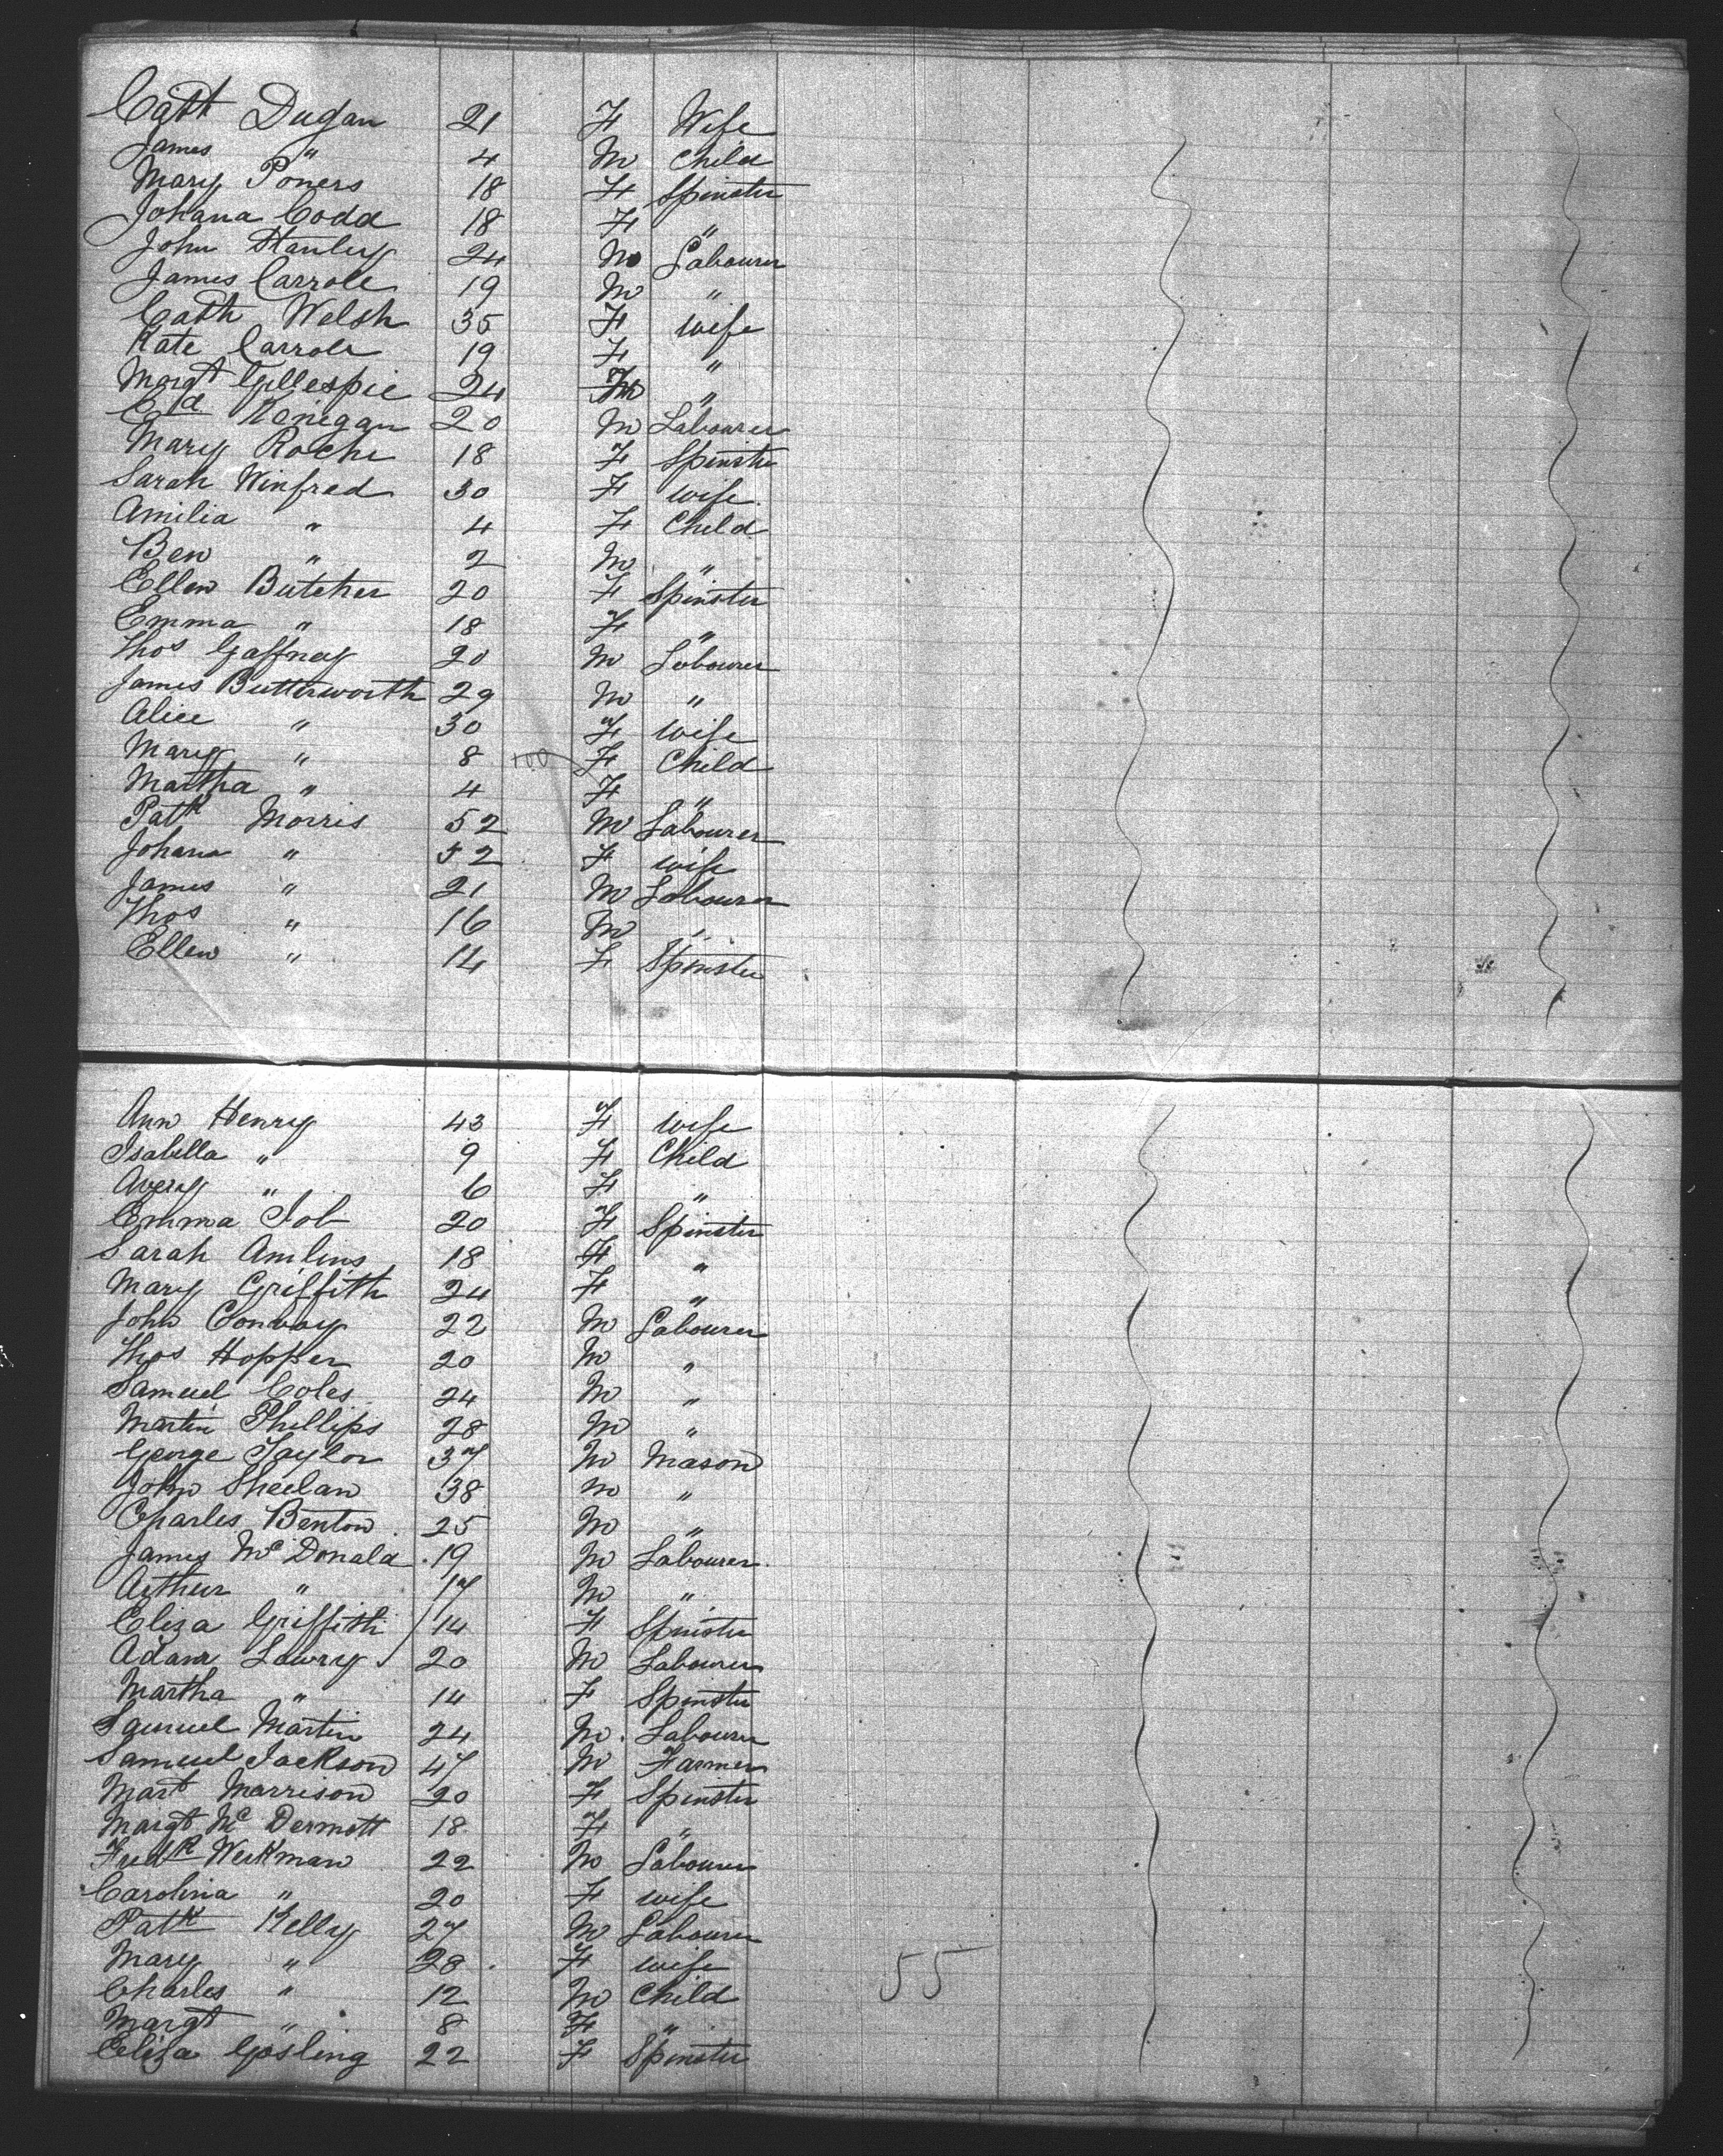 Cath Dugan 21 F Wife
James " 4 M Child
Mary Poners 18 F Spinster
Johana Codd 18 F "
John Stanley 24 M Labourer
James Carrole 19 M "
Cath Welsh 35 F wife
Kate Carrole 19 F "
Margt Gillespie 24 F "
Ed Kenegan 20 M Labourer
Mary Roche 18 F Spinster
Sarah Winfred 30 F wife
Amilia " 4 F Child
Ben " 2 M "
Ellen Butcher 20 F Spinster
Emma " 18 F "
Thos Gaffney 20 M Labourer
James Butterworth 29 M "
Alice " 30 F wife
Mary " 8 100 F Child
Martha " 4 F "
Patk Morris 52 M Labourer
Johana " 52 F wife
James " 21 M Labourer
Thos " 16 M "
Ellen " 14 F Spinster
Ann Henry 43 F wife
Isabella " 9 F Child
Avery " 6 F "
Emma Job 20 F Spinster
Sarah Amlins 18 F "
Mary Griffith 24 F "
John Conway 22 M Labourer
Thos Hopper 20 M "
Samuel Coles 24 M "
Martin Phillips 28 M "
George Taylor 37 M Mason
John Sheelan 38 M "
Charles Benton 25 M "
James McDonald 19 M Labourer
Arthur " 17 M "
Eliza Griffith 14 F Spinster
Adam Lowry 20 M Labourer
Martha " 14 F Spinster
Samuel Martin 24 M Labourer
Samuel Jackson 47 M Farmer
Mart Morrison 20 F Spinster
Margt McDermott 18 F "
Fredk Werkman 22 M Labourer
Carolina " 20 F wife
Patk Kelly 27 M Labourer
Mary " 28 F wife 55
Charles " 12 M Child
Margt " 8 F "
Eliza Gosling 22 F Spinster